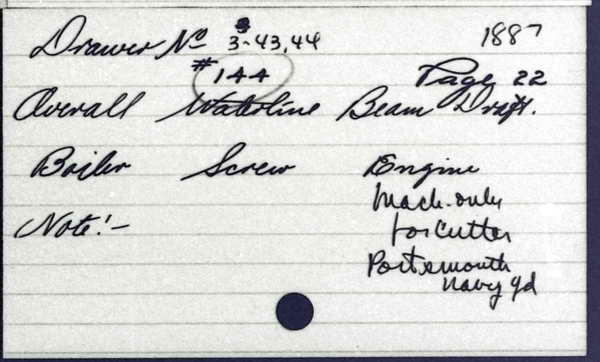 Drawer No 3-43,44 1887
#144 Page 22
Overall Waterline Beam Draft.
Boiler Screw Engine
Mach. only
Note:- for Cutter
Portsmouth
Navy Yd